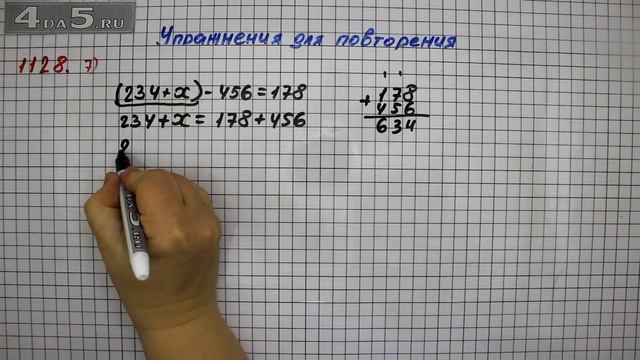 4DA5.RU
Упражнения для повторения
1128. 7)
(234+x)-456=178
234+x= 178+456
178
+
456
634